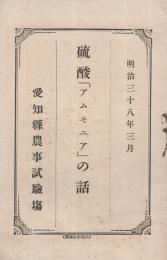 明治三十八年三月
硫酸「アムモニア」の話
愛知縣農事試驗場